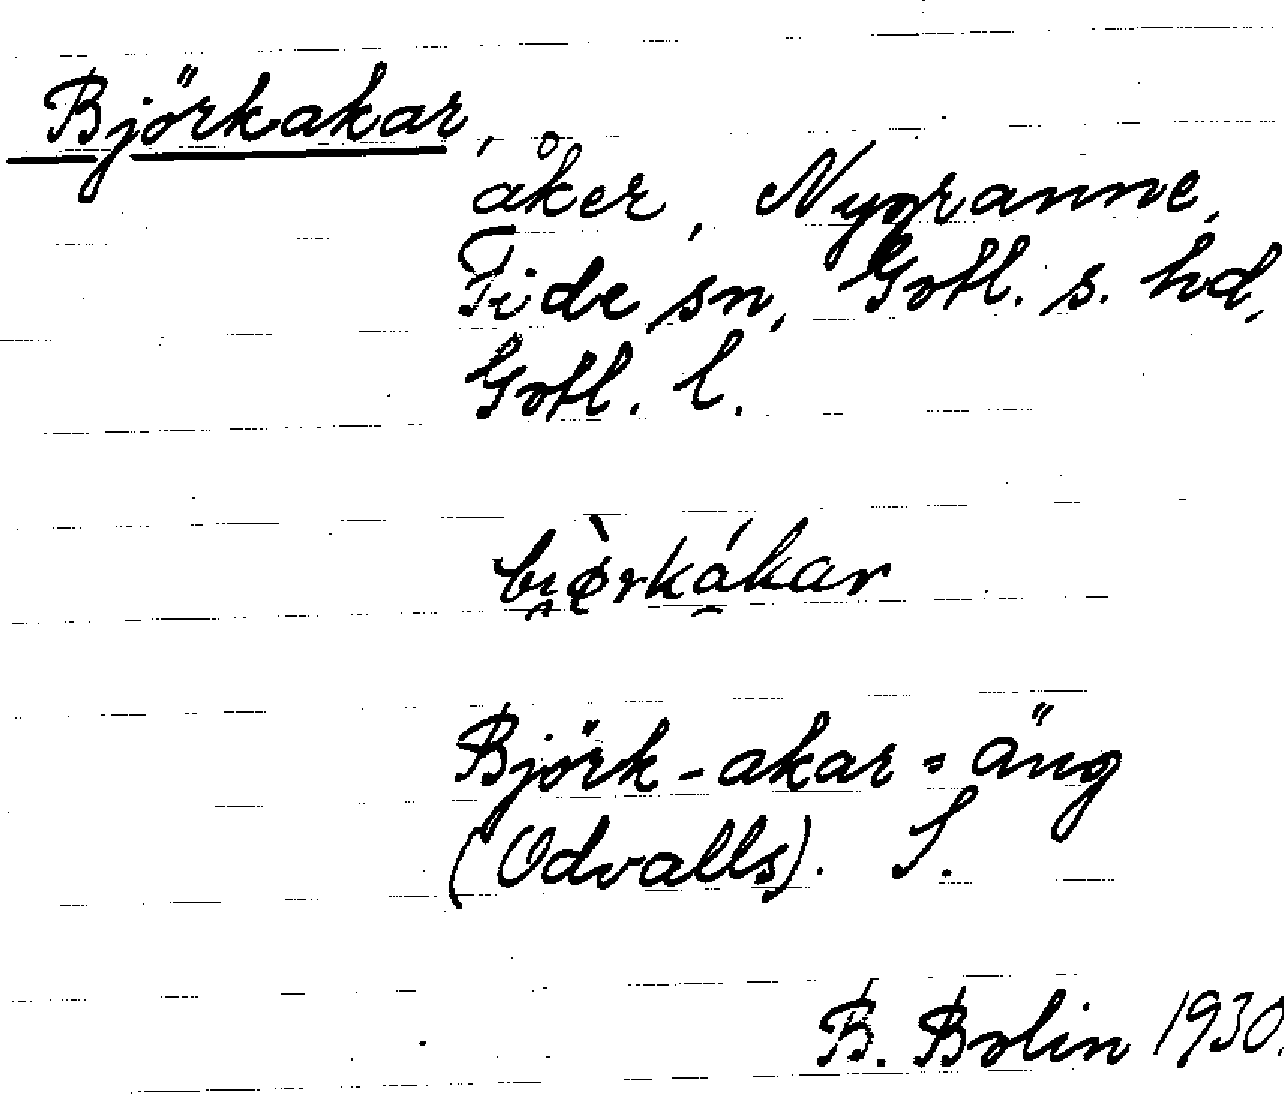 Björkakar,
åker, Nygranne,
Fide sn, Gotl. s. hd,
Gotl. l.
bi̯ò̜rkákar
Björk-akar = äng
(Odvalls). S.
B. Bolin 1930.